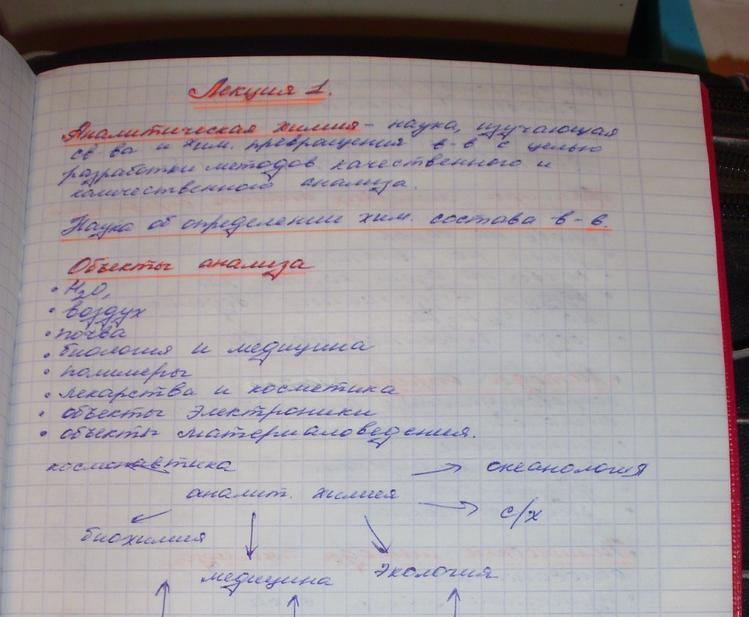 Лекция 1.
Аналитическая химия – наука, изучающая
св ва и хим. превращения в-в с целью
разработки методов качественного и
количественного анализа.
Наука об определении хим. состава в-в.
Объекты анализа
• H₂O,
• воздух
• почва
• биология и медицина
• полимеры
• лекарства и косметика
• объекты электроники
• объекты материаловедения.
космонавтика → океанология
аналит. химия → с/х
биохимия
медицина экология